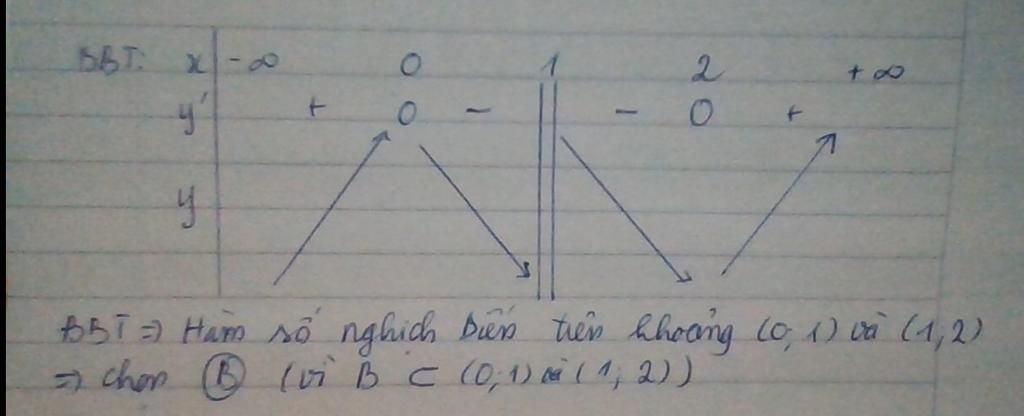 BBT: x -∞ 0 1 2 +∞
y' + 0 - - 0 +
y
BBT => Hàm số nghịch biến trên khoảng (0,1) và (1,2)
=> chọn B (vì B ⊂ (0,1) và (1,2))